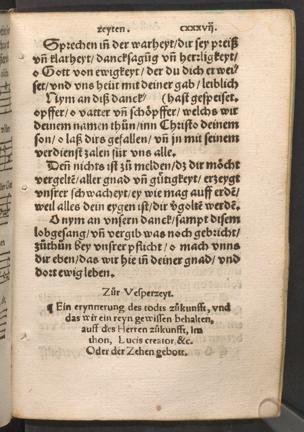 zeyten. cxxxvij.
Sprechen in̄ der warheyt/dir sey preiß
vn̄ klarheyt/dancksagūg vn̄ herꝛligkeyt/
o Gott von ewigkeyt/der du dich erwei/
set/vnd vns heüt mit deiner gab/leiblich
Nym an diß danck/ (hast gespeiset.
opffer/o vatter vn̄ schöpffer/welchs wir
deinem namen thūn/inn Christo deinem
son/o laß dirs gefallen/vn̄ jn mit seinem
verdienst zalen für vns alle.
Den̄ nichts ist zū melden/dz dir möcht
vergeltē/aller gnad vn̄ gūtgkeyt/erzeygt
vnsrer schwacheyt/ey wie mag auff erdē/
weil alles dein eygen ist/dir v̄golte werdē.
O nym an vnsern danck/sampt disem
lobgesang/vn̄ vergib was noch gebricht/
zūthūn bey vnsrer pflicht/o mach vnns
dir eben/das wir hie in̄ deiner gnad/vnd
dort ewig leben.
Zūr Vesperzeyt.
¶ Ein erynnerung des todts zūkunfft, vnd
das wir ein reyn gewissen behalten,
auff des Herren zūkunfft, Im
thon, Lucis creator,&c.
Oder der Zehen gebott.